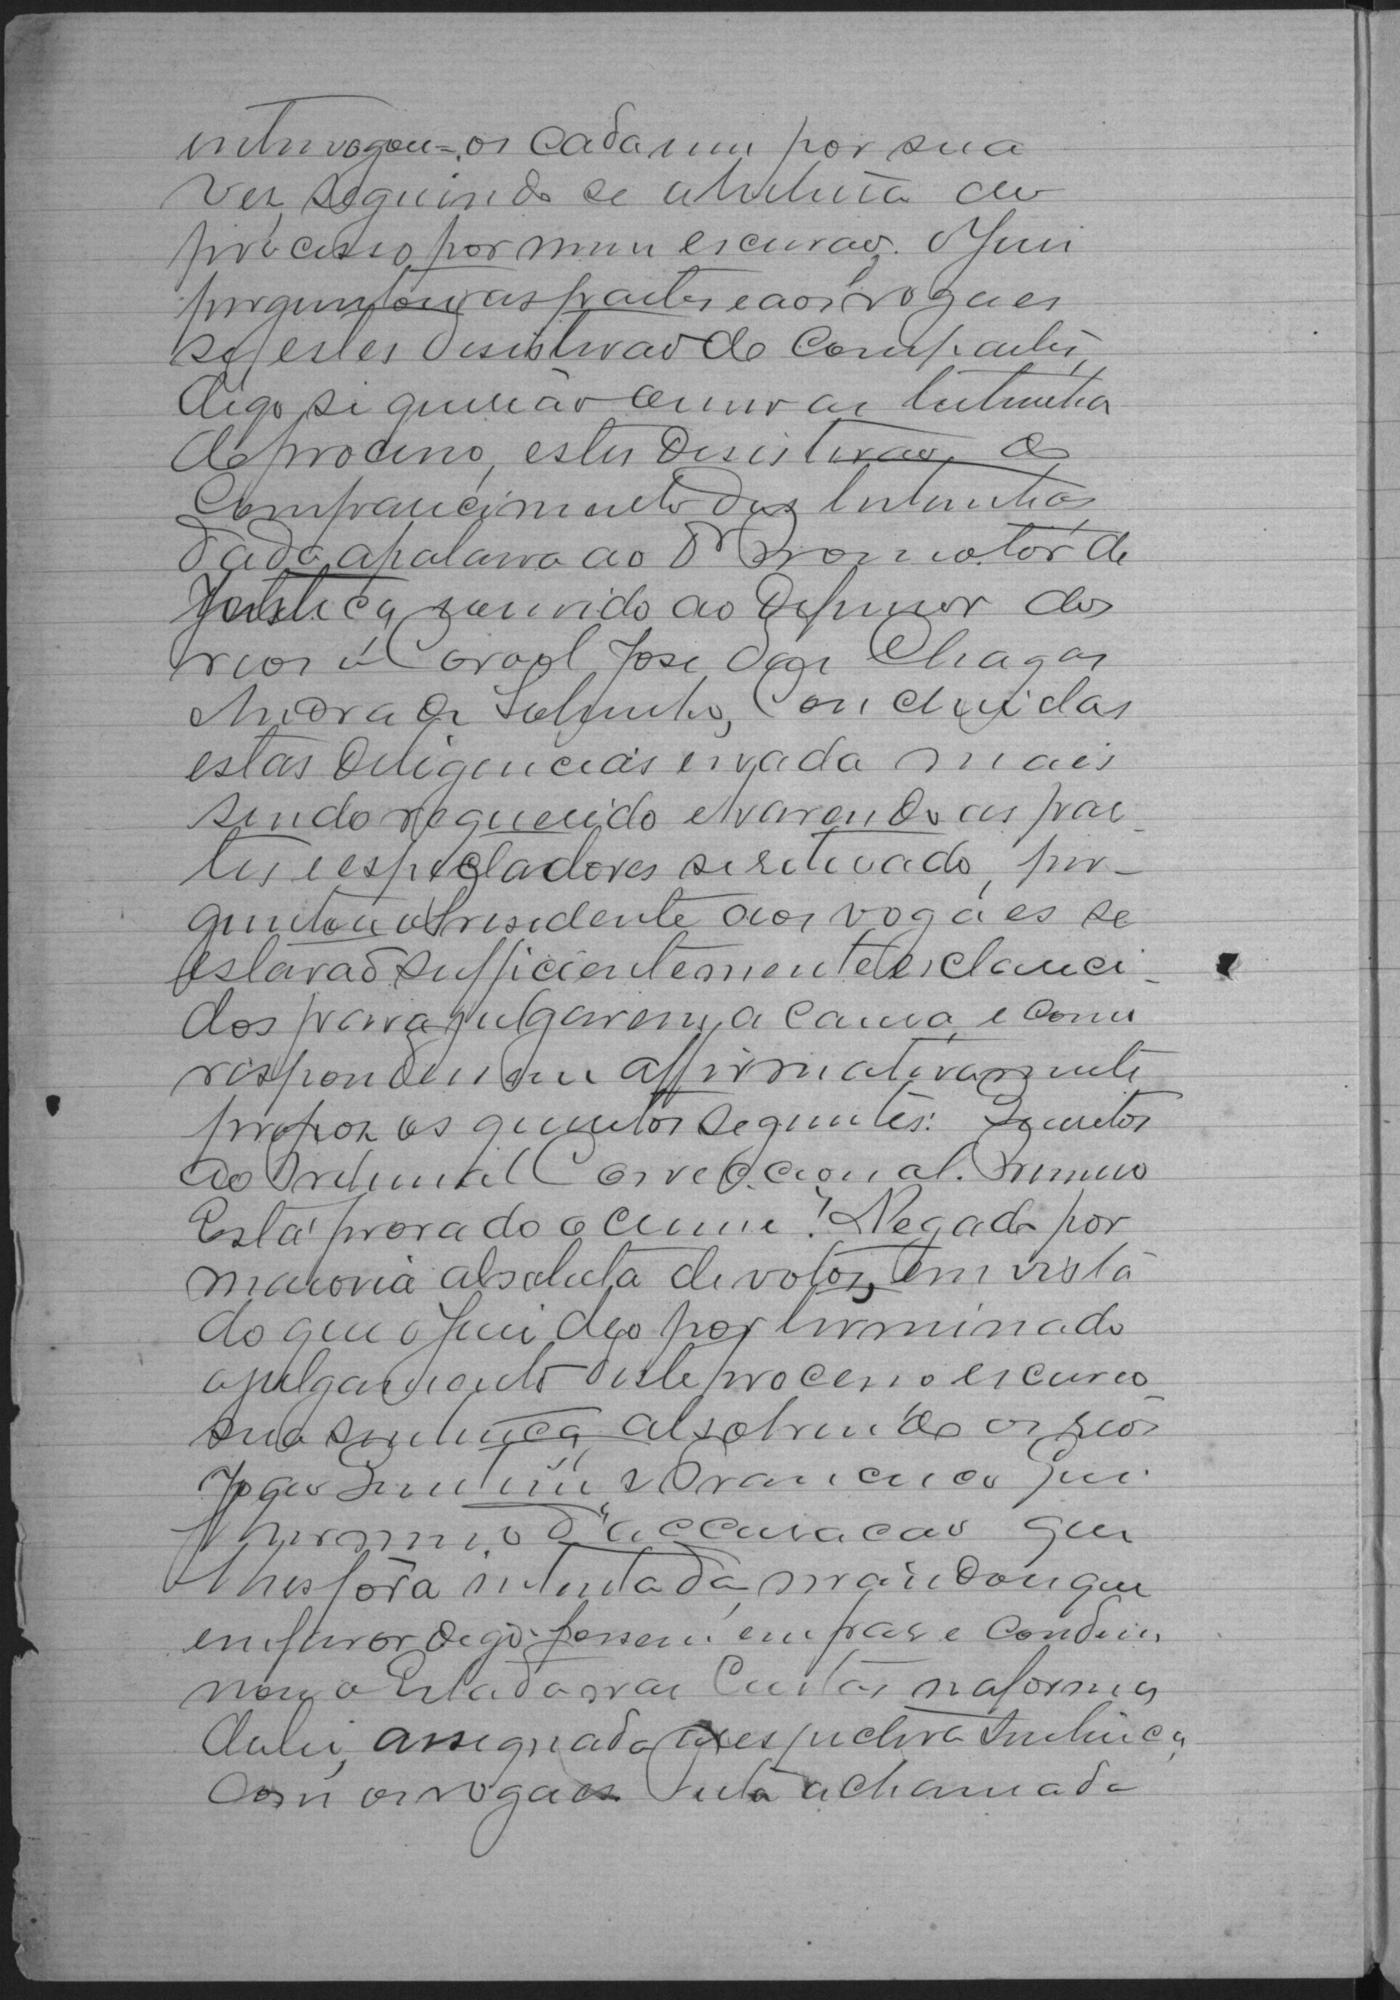 interrogou-os cada um por sua
vez, seguindo se a leitura do
processo por mim escrivão. O Juiz
perguntou as partes e aos vogaes
se estes desistirão do comparte,
digo, si querião ouvir as testimunhas
do processo, estes desistirão do
comparecimento das testimunhas
dada a palavra ao Dr Promotor de
Justiça, e ouvido ao defensor dos
reos o Coronel José das Chagas
Andrade Sobrinho, Concluidas
estas diligencias e nada mais
sendo requerido e havendo as par-
tes e espectadores se retirado, per-
guntou o Presidente aos vogaes se
estavão sufficientemente esclareci-
dos para julgarem a causa, e como
responderam affirmativamente
propoz os quesitos seguintes: Quesitos
ao Tribunal Correccional. Primeiro
Está provado o crime? Negado por
maioria absoluta de votos, em vista
do que o Juiz deo por terminado
o julgamento deste processo e escreveo
sua sentença, absolvendo os reos
João e Francisco
da accusação que
lhes fôra intentada, mandou que
em favor digo fossem em paz e condem
nou o Estado nas Custas na forma
da lei, assignada a respectiva sentença
com os vogaes. Feita a chamada